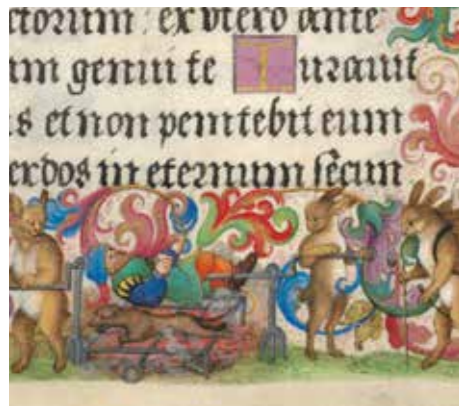 ctorum: ex vtero ante
um genui te Iurauit
s et non penitebit eum
erdos in eternum secun